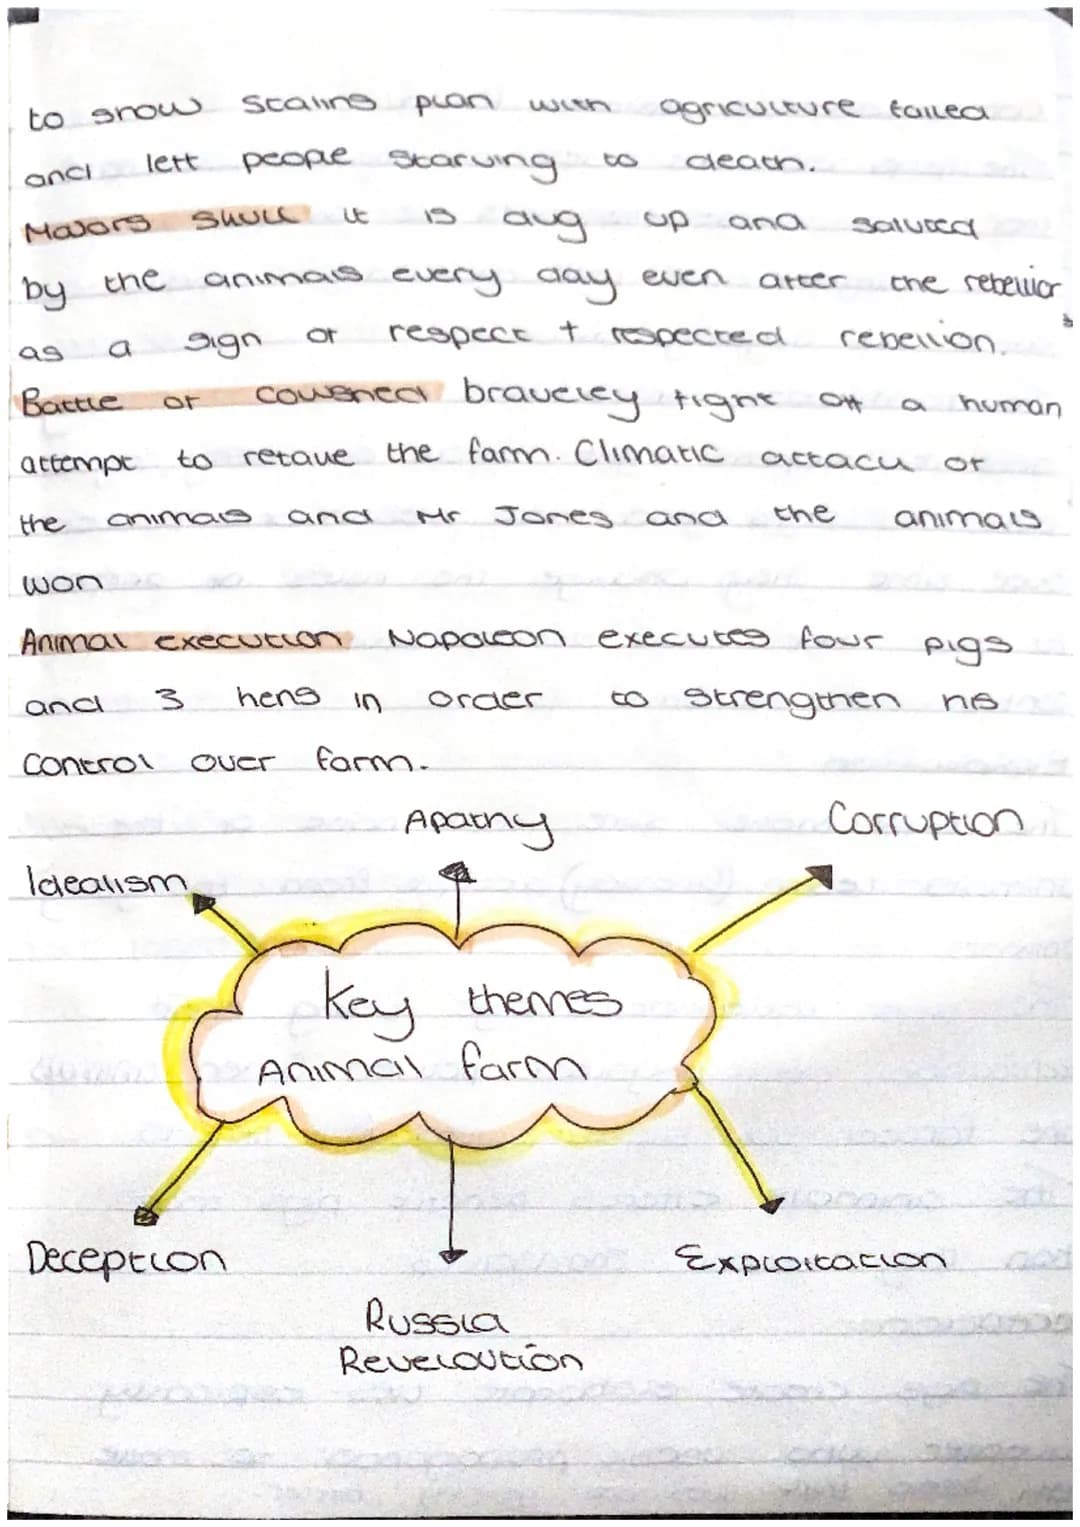 to show Stalins plan with agriculture failed
and left people starving to death.
Majors skull it is dug up and saluted
by the animals every day even after the rebellior
as a sign of respect + respected rebellion.
Battle of Cowshed braveley fight off a human
attempt to retake the farm. Climatic attack of
the animals and Mr Jones and the animals
won
Animal execution Napoleon executes four pigs
and 3 hens in order to strengthen his
control over farm.
Apathy
Corruption
Idealism
Key themes
Animal farm
Deception
Exploitation
Russia
Reveloution